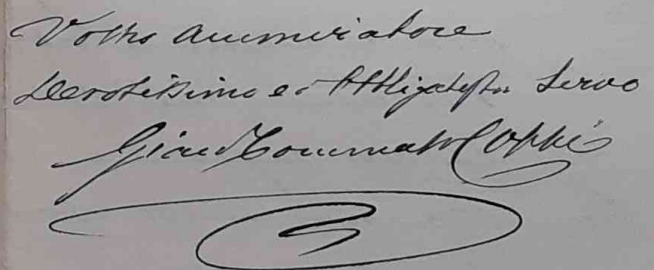 Vostro ammiratore
Devotissimo ed Obbligatissimo Servo
Gian Tommaso Coppi